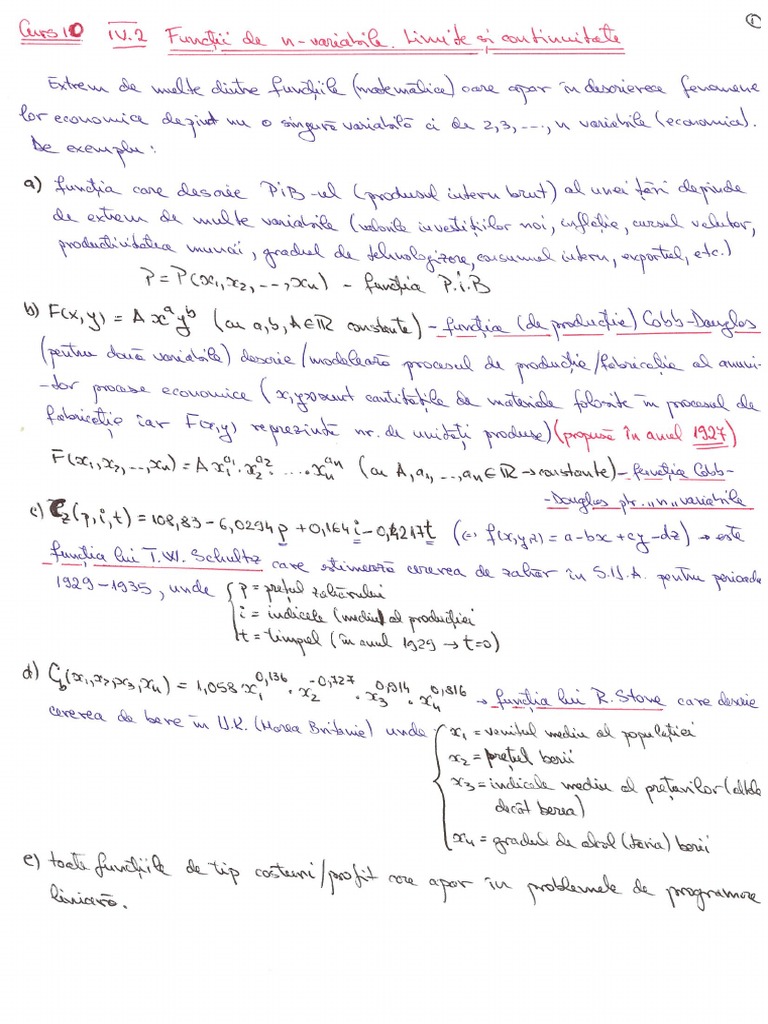 ①
Curs 10 IV.2 Funcții de n-variabile. Limite și continuitate
Extrem de multe dintre funcțiile (matematice) care apar în descrierea fenomene
lor economice depind nu o singură variabilă ci de 2,3,...,n variabile (economice).
De exemplu:
a) funcția care descrie PiB-ul (produsul intern brut) al unei țări depinde
de extrem de multe variabile (valorile investițiilor noi, inflație, cursul valutar,
productivitatea muncii, gradul de tehnologizare, consumul intern, exportul, etc.)
P = P(x₁, x₂, ..., xₙ) – funcția P.i.B
b) F(x,y) = A xᵃyᵇ (cu a,b,A∈ℝ constante) – funcția (de producție) Cobb-Douglas
(pentru două variabile) descrie/modelează procesul de producție/fabricație al anumi-
-tor procese economice (x,y sunt cantitățile de materiale folosite în procesul de
fabricație iar F(x,y) reprezintă nr. de unități produse) (propusă în anul 1927)
F(x₁,x₂,...,xₙ) = A x₁^a₁ · x₂^a₂ · ... · xₙ^aₙ (cu A,a₁,...,aₙ∈ℝ → constante) – funcția Cobb-
-Douglas ptr. „n" variabile
c) C_z(p,i,t) = 108,83 – 6,0294p + 0,164i – 0,4217t (↔ f(x,y,z) = a-bx+cy-dz) → este
funcția lui T.W. Schultz care estimează cererea de zahăr în S.U.A. pentru perioada
1929–1935, unde { p = prețul zahărului
i = indicele (mediu) al producției
t = timpul (în anul 1929 → t=0)
d) C_b(x₁,x₂,x₃,x₄) = 1,058 x₁^0,136 · x₂^-0,727 · x₃^0,914 · x₄^0,816 → funcția lui R. Stone care descrie
cererea de bere în U.K. (Marea Britanie) unde { x₁ = venitul mediu al populației
x₂ = prețul berii
x₃ = indicele mediu al prețurilor (altele
decât berea)
x₄ = gradul de alcol (tăria) berii
e) toate funcțiile de tip costuri/profit care apar în problemele de programare
liniară.